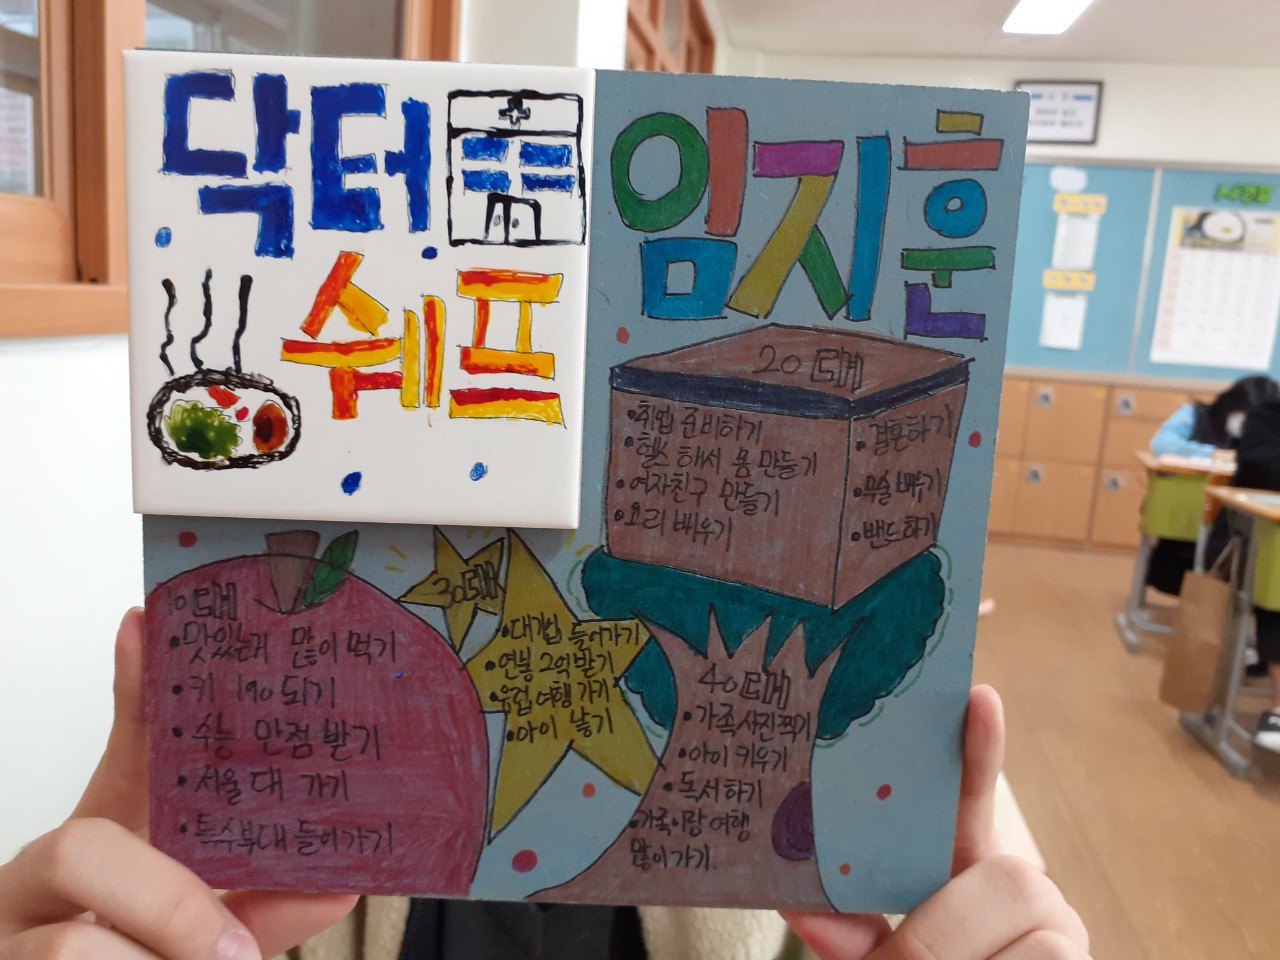 닥터
쉐프
임지훈
20대에
•취업 준비하기
•헬스 해서 몸 만들기
•여자친구 만들기
•요리 배우기
•결혼하기
•무술 배우기
•밴드하기
10대에
•맛있는거 많이 먹기
•키 190 되기
•수능 만점 받기
•서울대 가기
•특수부대 들어가기
30대에
•대기업 들어가기
•연봉 2억 받기
•유럽 여행 가기
•아이 낳기
40대에
•가족사진 찍기
•아이 키우기
•독서하기
•가족이랑 여행
많이 가기.